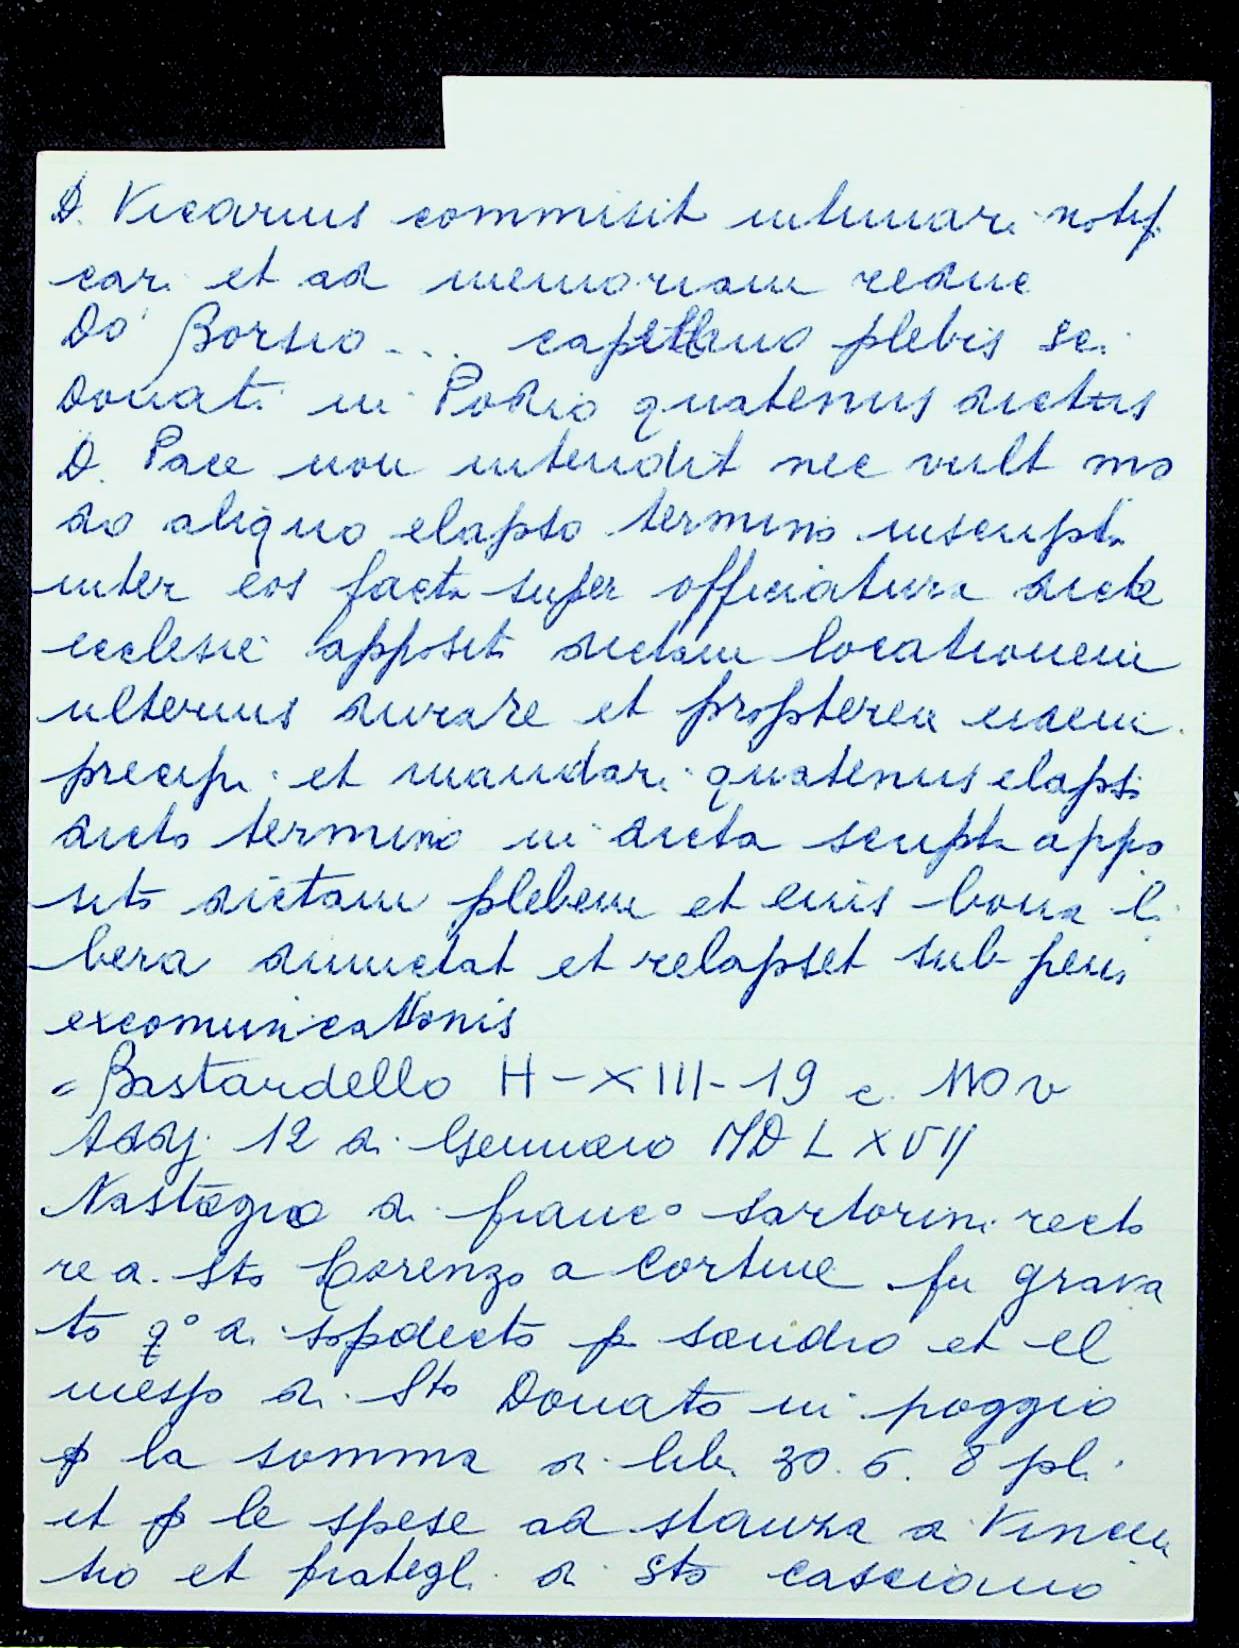 D. Vicarius commisit intimari notifi
cari et ad memoriam reduci
Do Borsio ... capellano plebis sci
Donati in Podio quatenus dictus
D. Pace non intendit nec vult mo
do aliquo elapso termino inscripta
inter eos facta super officiatura dicte
ecclesie apposito dictam locationem
ulterius durare et propterea eidem
precipi et mandari quatenus elapso
dicto termino in dicta scripta appo
sito dictam plebem et eius bona li
bera dimictat et relapset sub pena
excomunicationis
= Bastardello H-XIII-19 c. 110 v
Addj 12 di Gennaro MDLXVIJ
Nastagio di franco sartorini recto
re a. Sto Lorenzo a Cortine fu grava
to qo di sopdecto p sandro et el
messo di Sto Donato in poggio
p la somma di lib. 30. 6. 8 pli
et p le spese ad stanza di Vincen
tio et frategli di Sto casciano